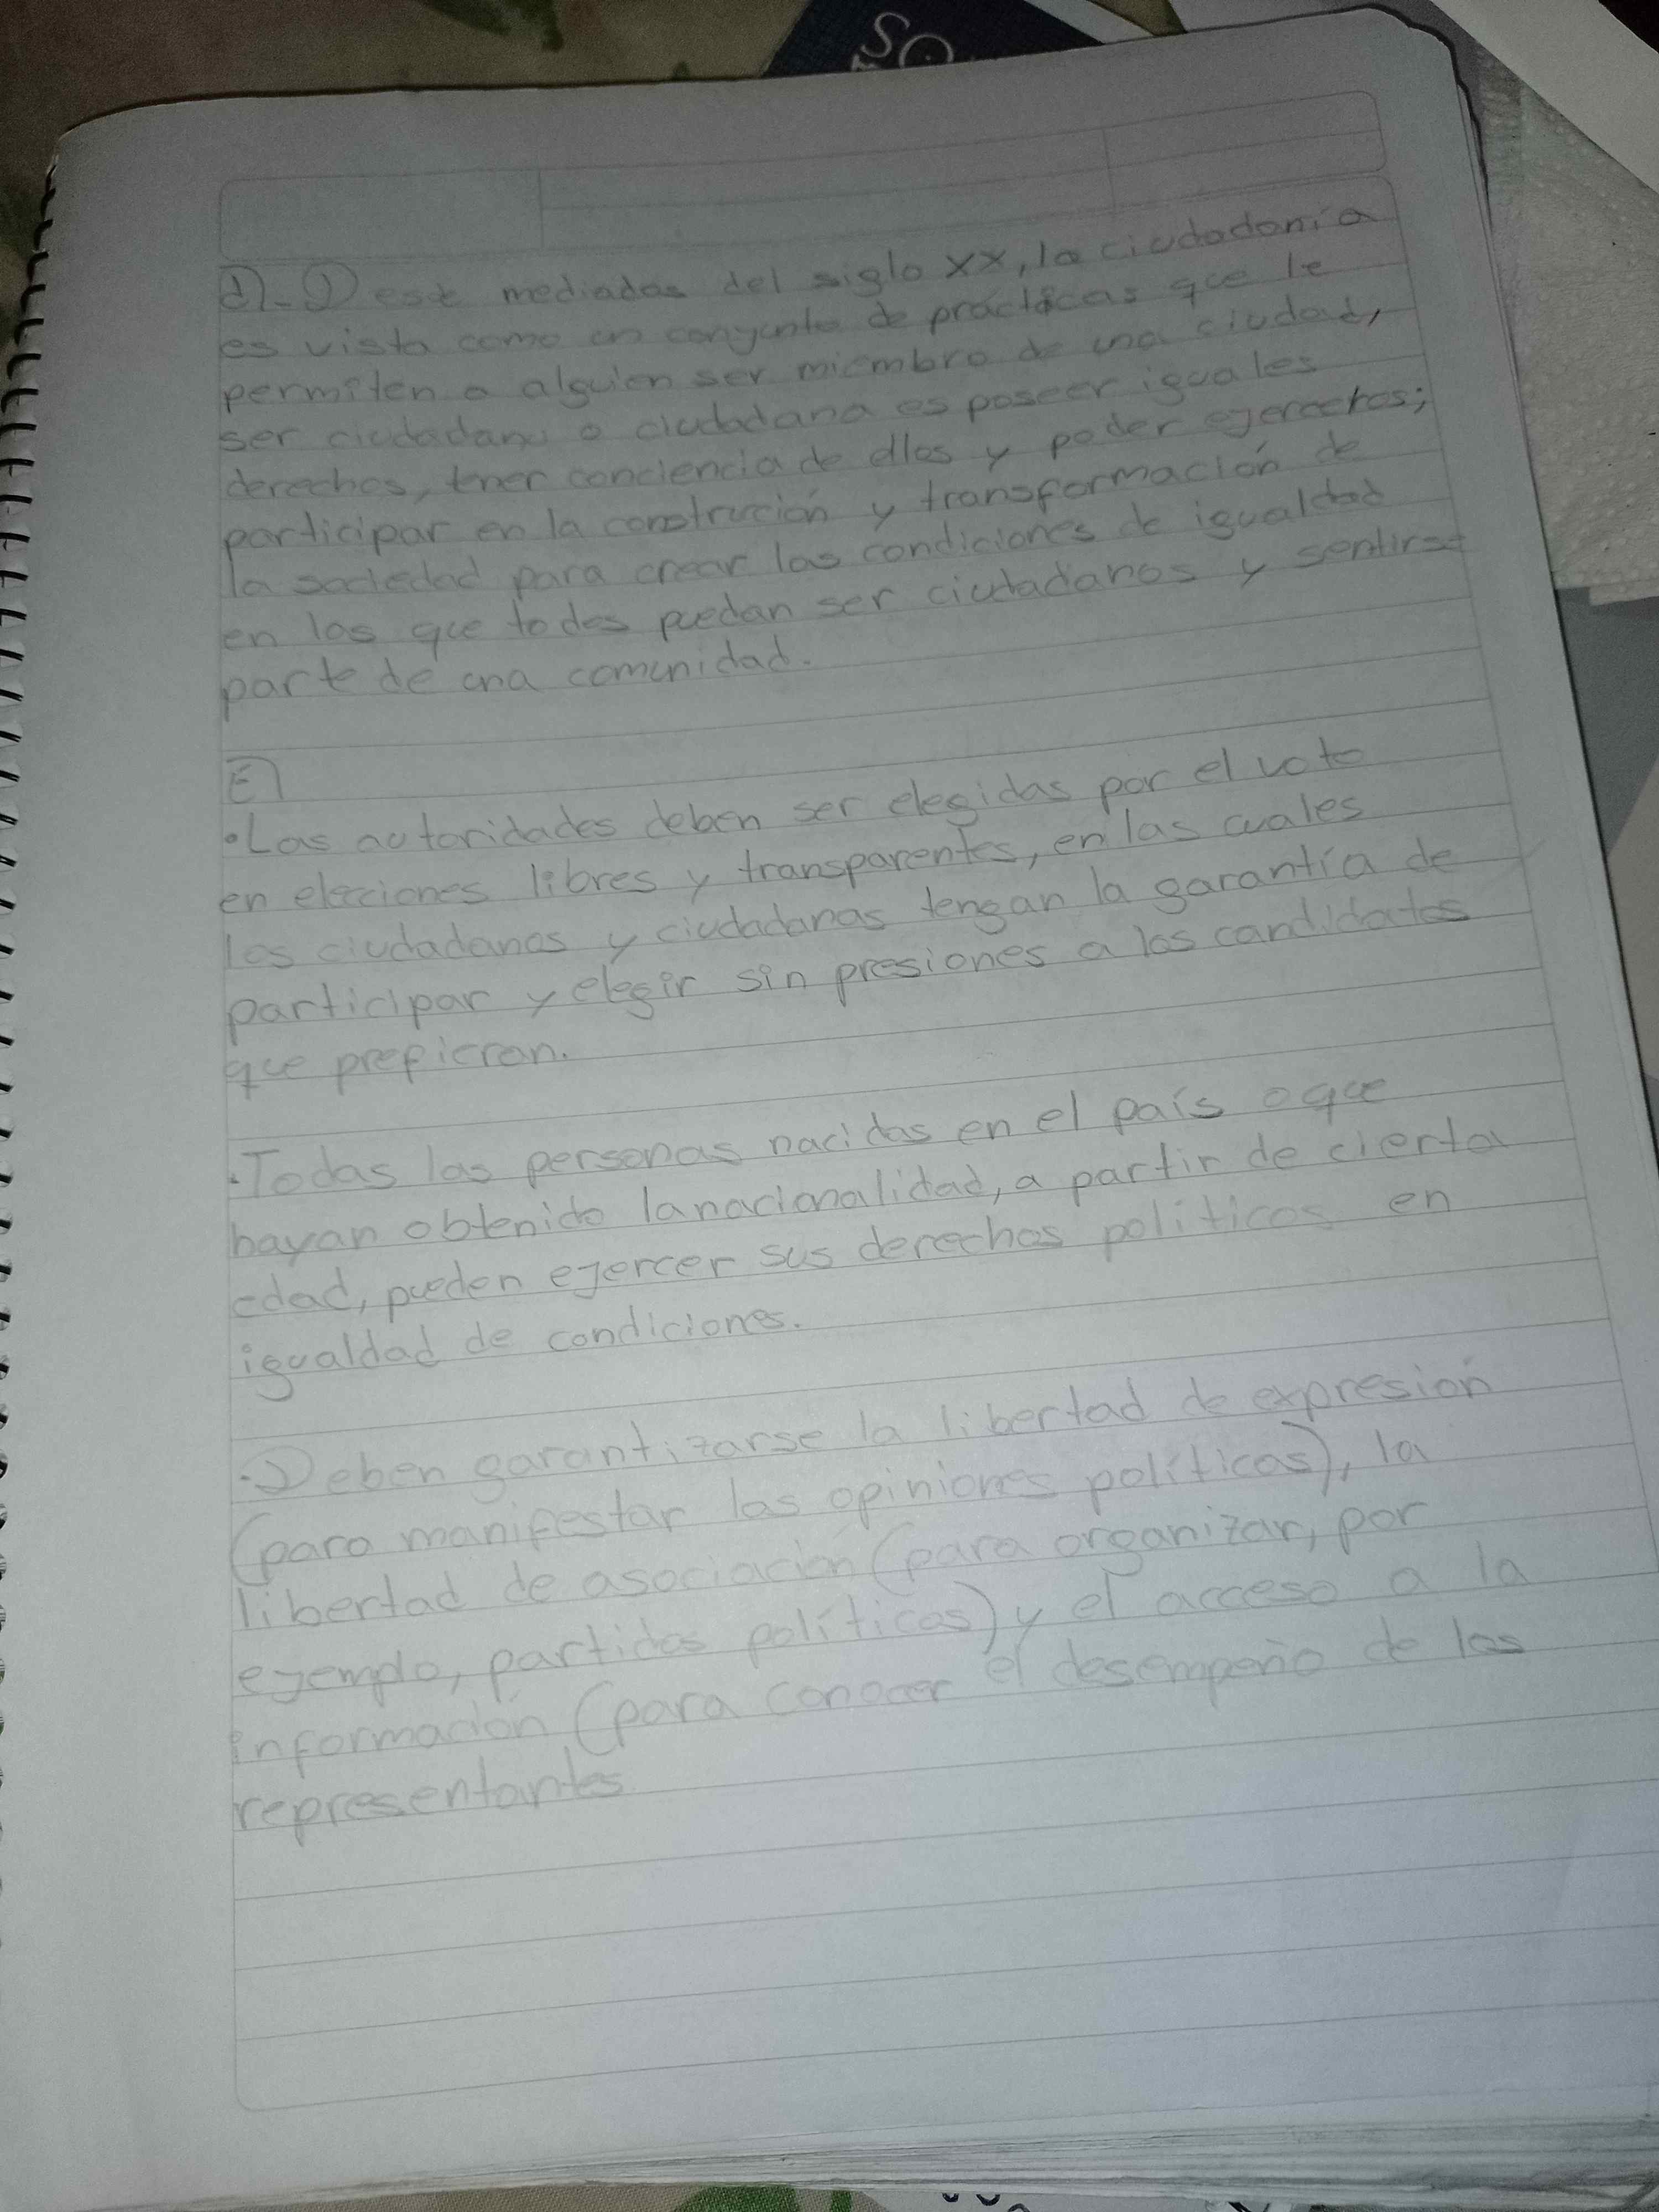 SO
d)- Desde mediados del siglo XX, la ciudadanía
es vista como un conyunto de practicas que le
permiten a alguien ser miembro de una ciudad,
ser ciudadano o ciudadana es poseer iguales
derechos, tener conciencia de ellos y poder ejercerlos;
participar en la construción y transformación de
la sociedad para crear las condiciones de igualdad
en las que todos puedan ser ciutadanos y sentirse
parte de una comunidad.
E)
•Las autoridades deben ser elegidas por el voto
en elecciones libres y transparentes, en las cuales
los ciudadanos y ciudadanas tengan la garantía de
participar y elegir sin presiones a los candidatos
que prefieran.
•Todas las personas nacidas en el país o que
hayan obtenido la nacionalidad, a partir de cierta
edad, pueden ejercer sus derechos políticos en
igualdad de condiciones.
•Deben garantizarse la libertad de expresión
(para manifestar las opiniones políticas), la
libertad de asociación (para organizar, por
eyemplo, partidos políticos) y el acceso a la
información (para conocer el desempeño de los
representantes